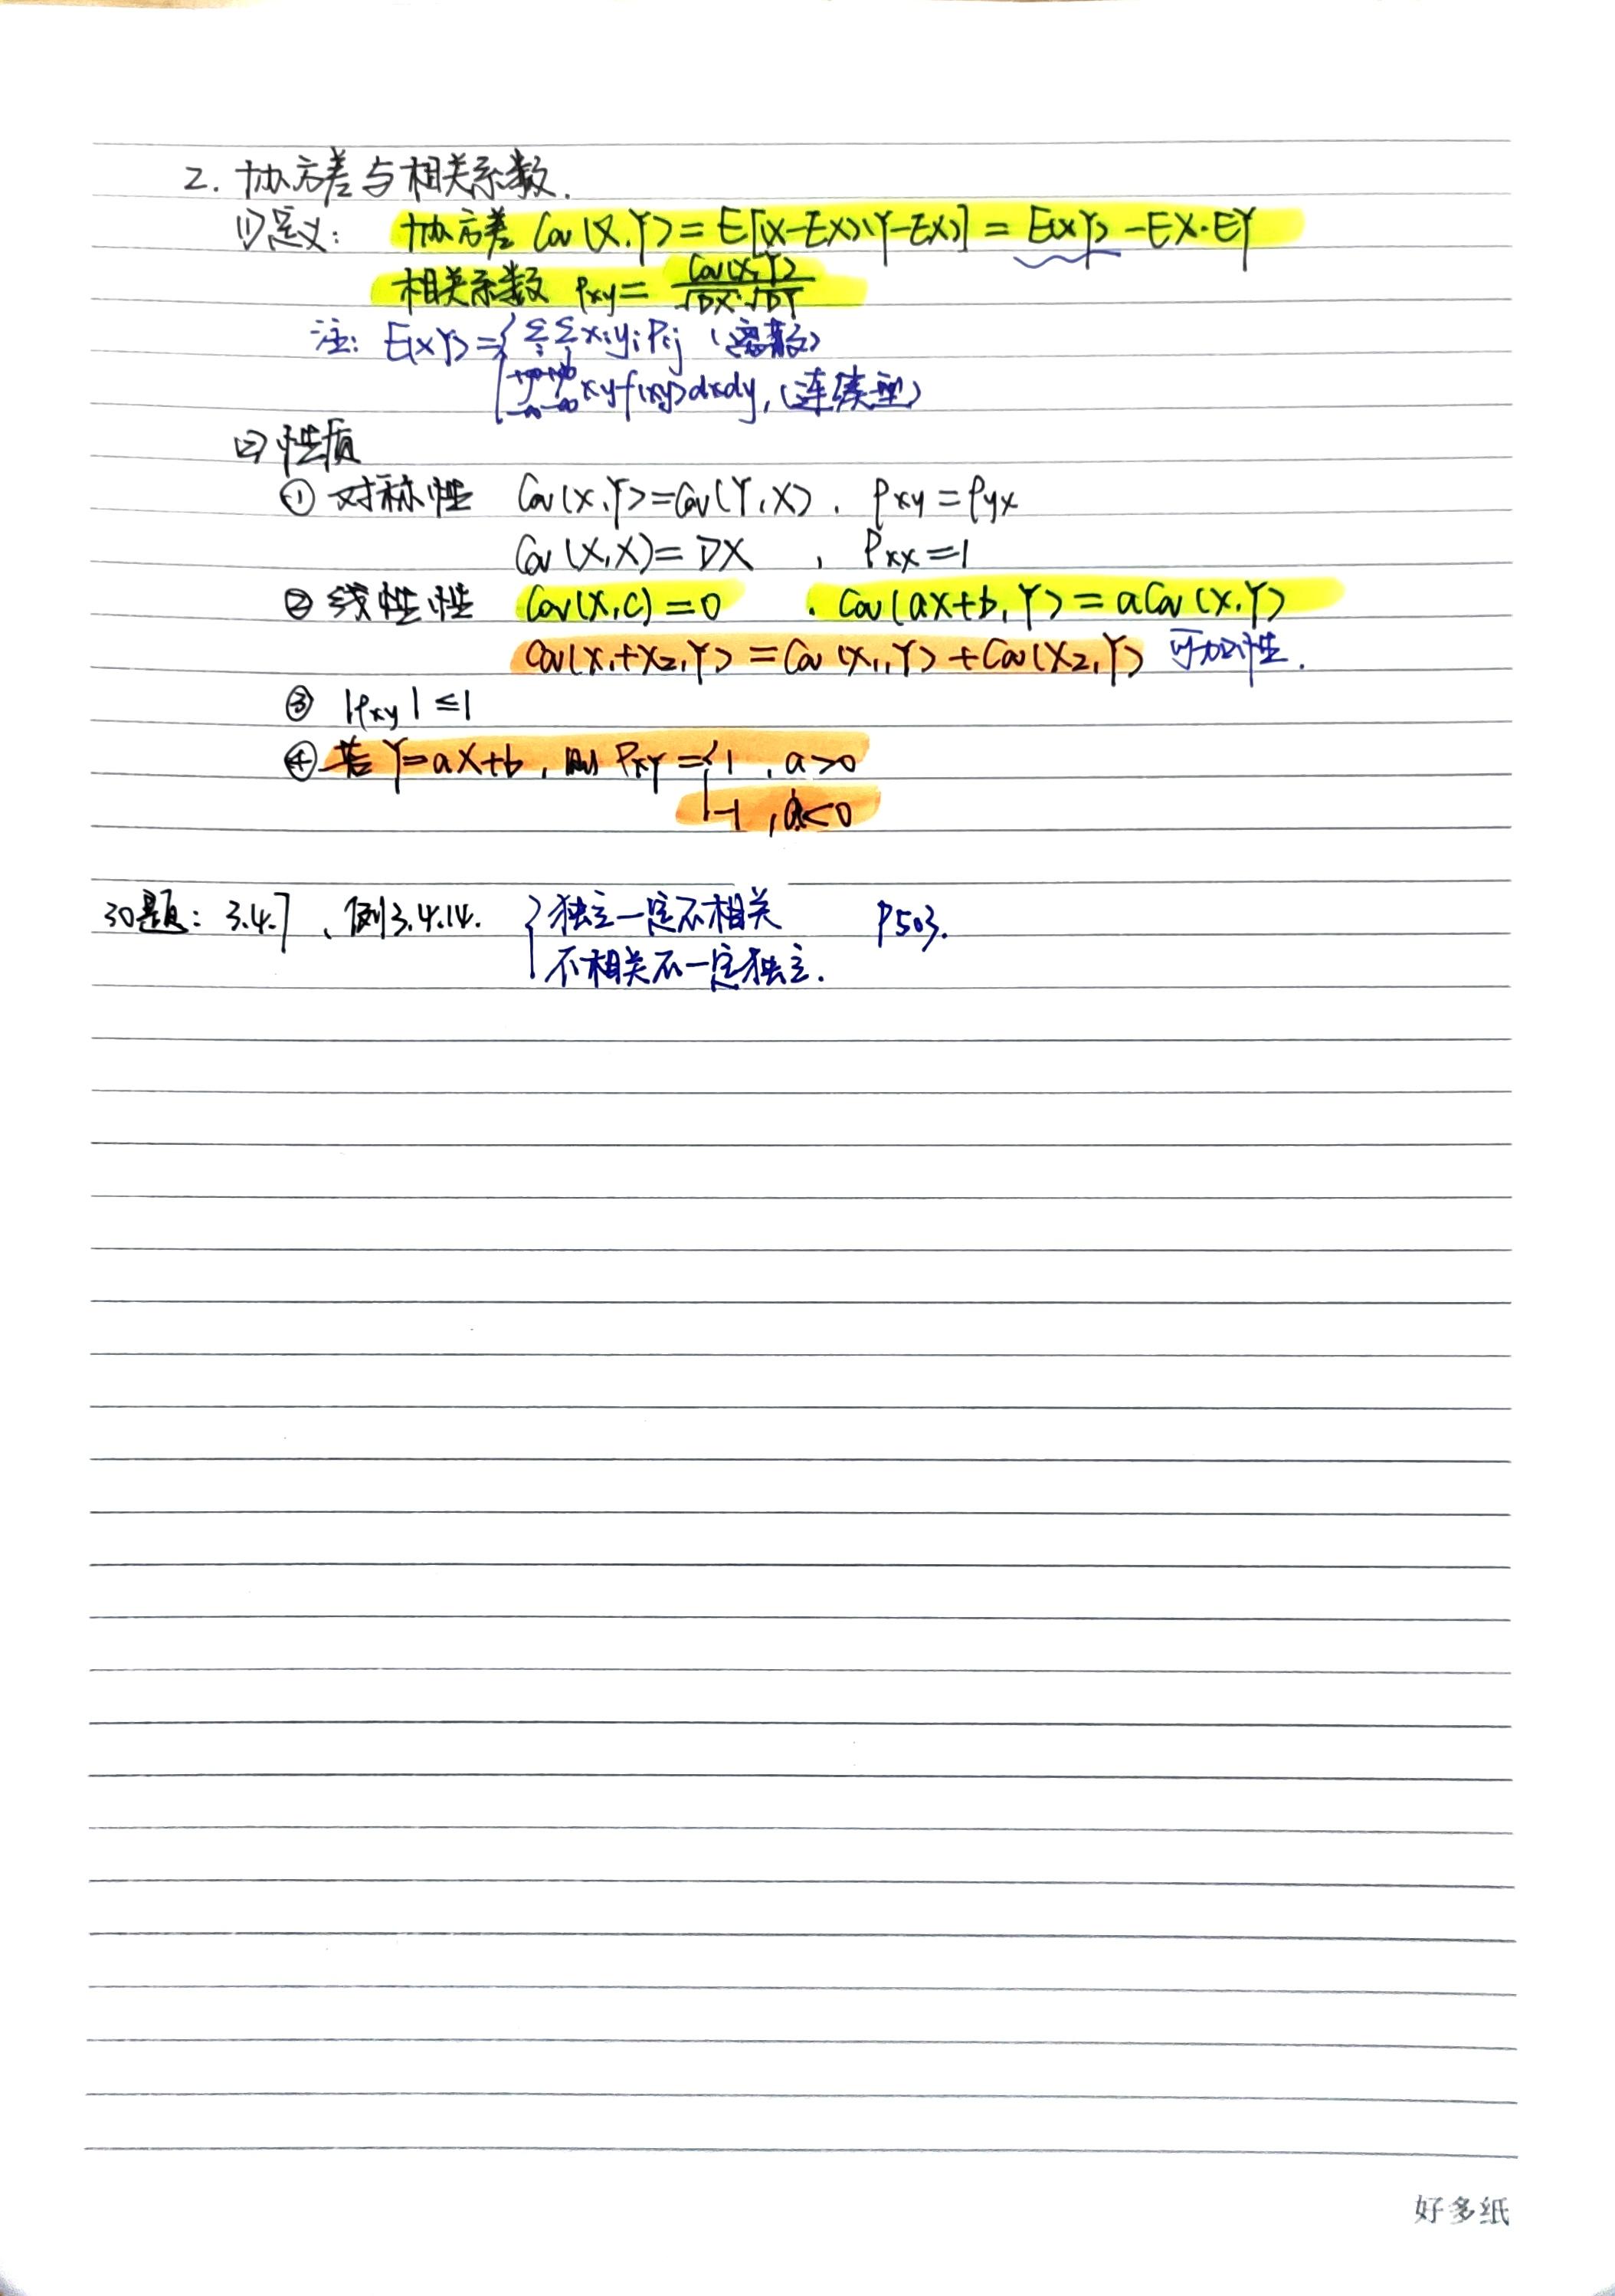 2. 协方差与相关系数.
(1)定义: 协方差 Cov(X,Y)=E[(X-EX)(Y-EX)]=E(XY)-EX·EY
相关系数 ρxy=Cov(X,Y)/√DX·√DY
注: E(XY)={∑i∑j xiyjPij (离散)
∫-∞+∞∫-∞+∞xyf(xy)dxdy, (连续型)
(2)性质
① 对称性 Cov(X,Y)=Cov(Y,X). ρxy=ρyx
Cov(X,X)=DX , ρxx=1
② 线性性 Cov(X,C)=0 . Cov(aX+b,Y)=aCov(X,Y)
Cov(X1+X2,Y)=Cov(X1,Y)+Cov(X2,Y) 可加性.
③ |ρxy|≤1
④ 若Y=aX+b, 则ρXY={1 , a>0
-1 , a<0
30题: 3.4.7、例3.4.14. {独立一定不相关 P503.
不相关不一定独立.
好多纸